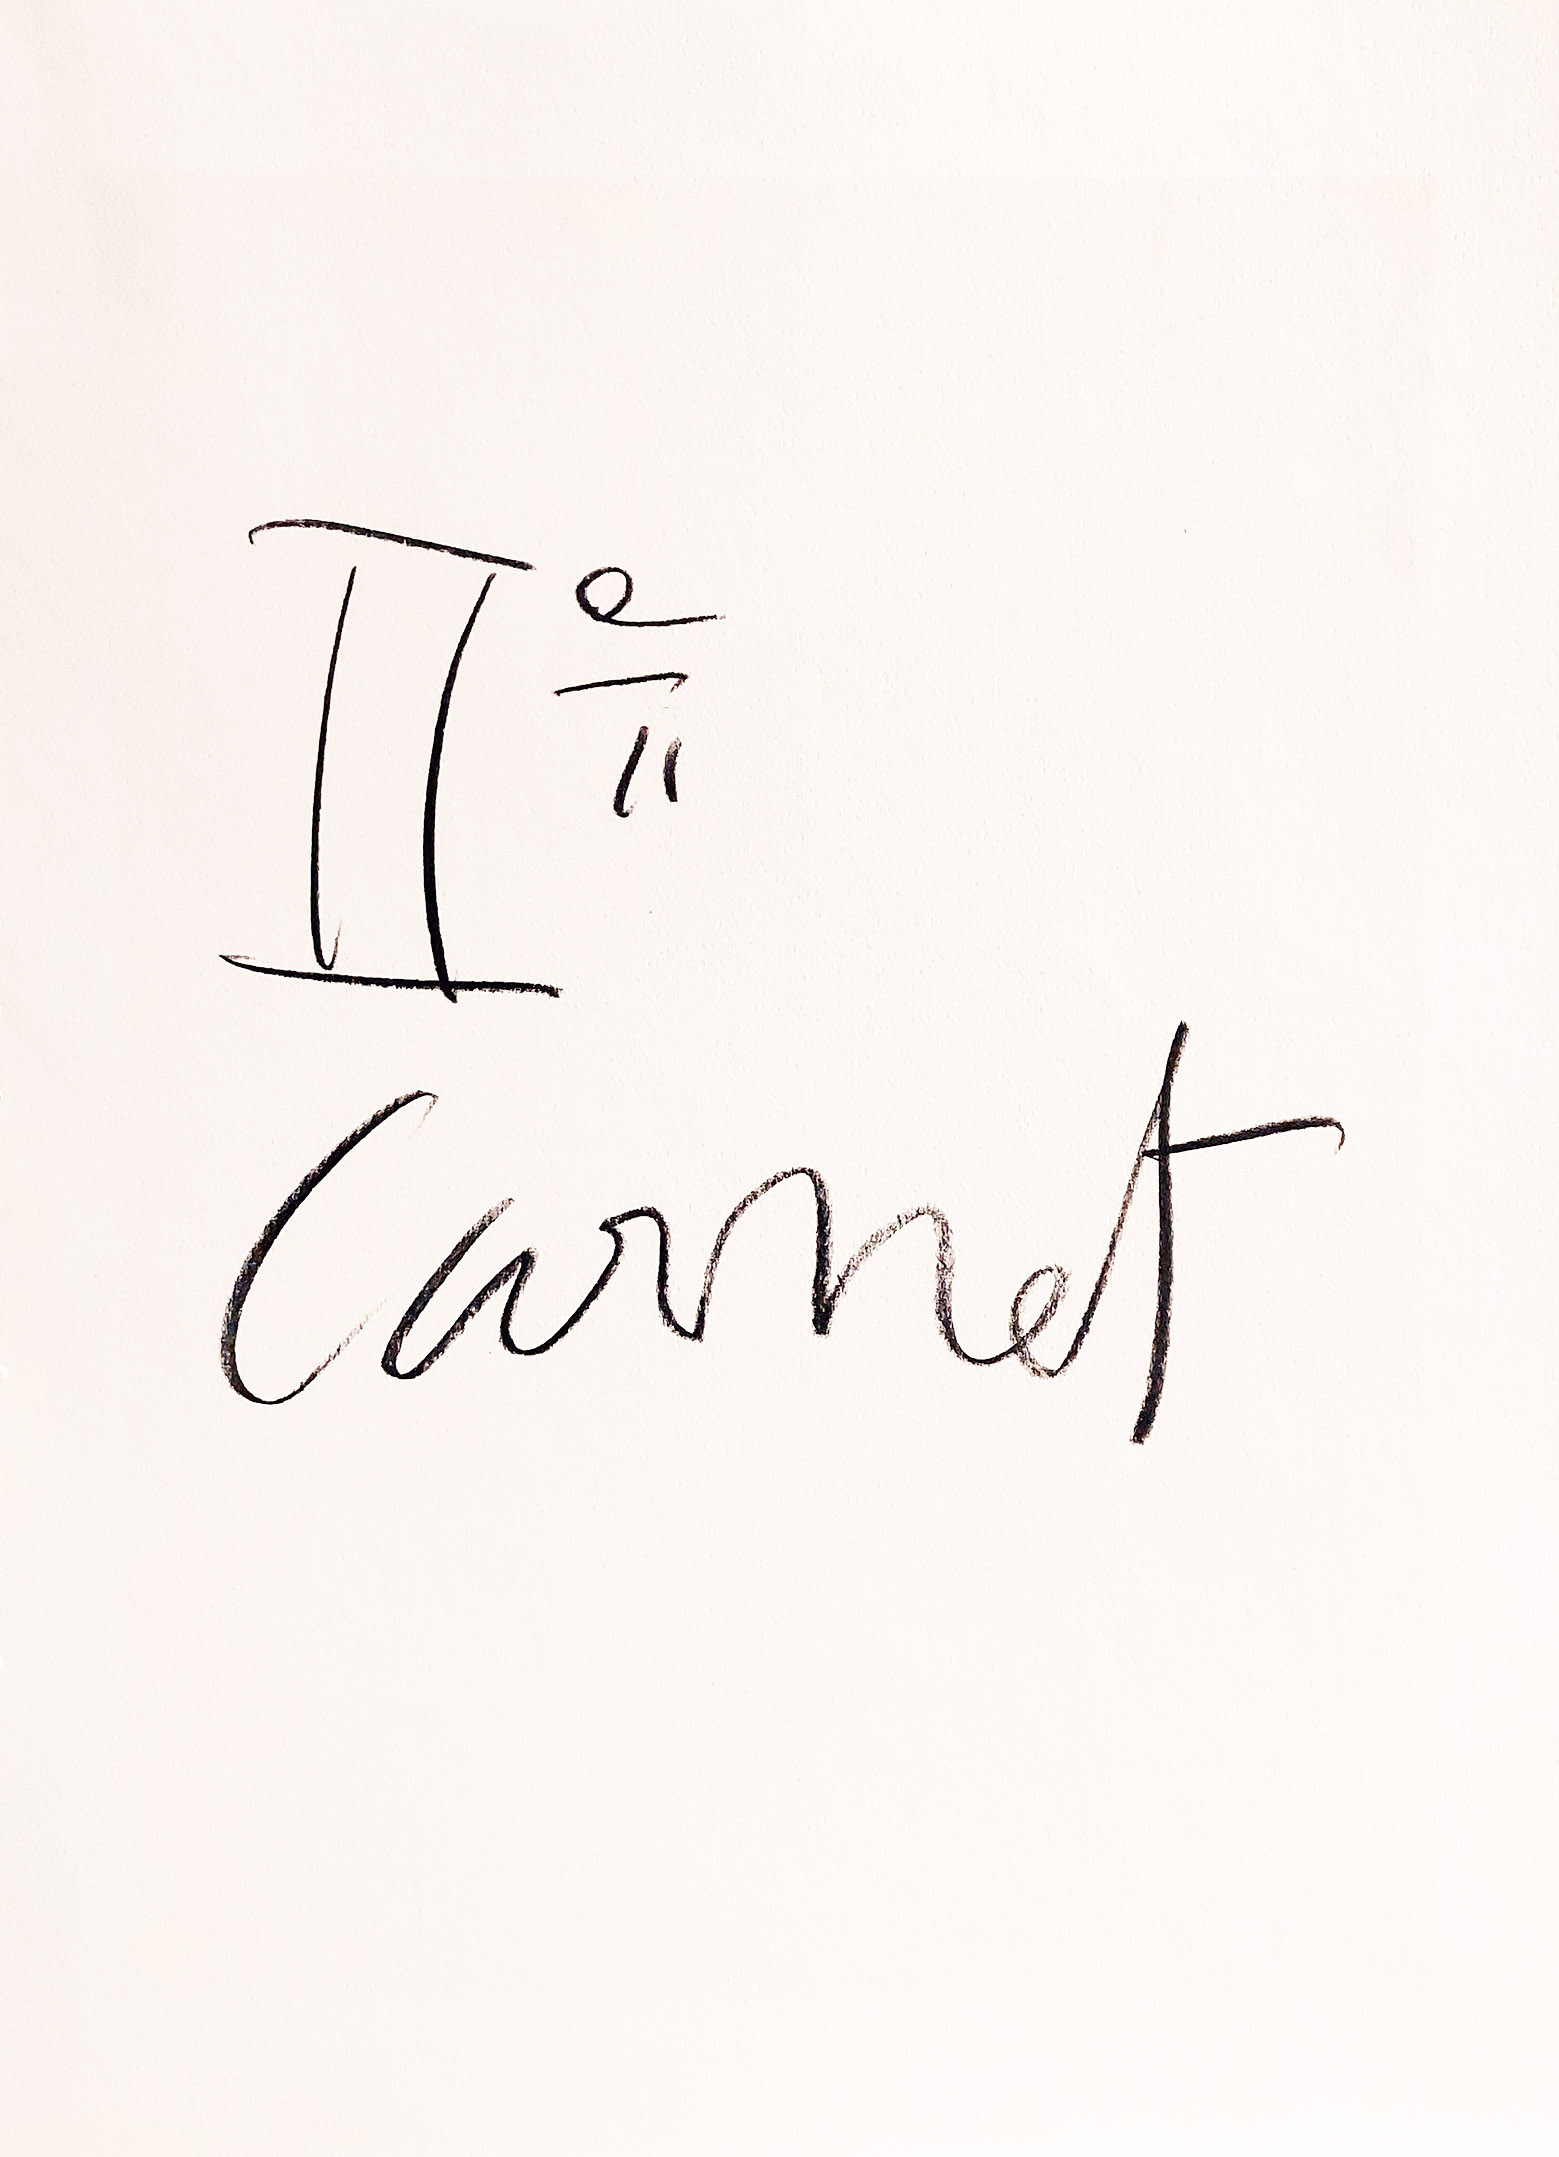 IIe
Carnet